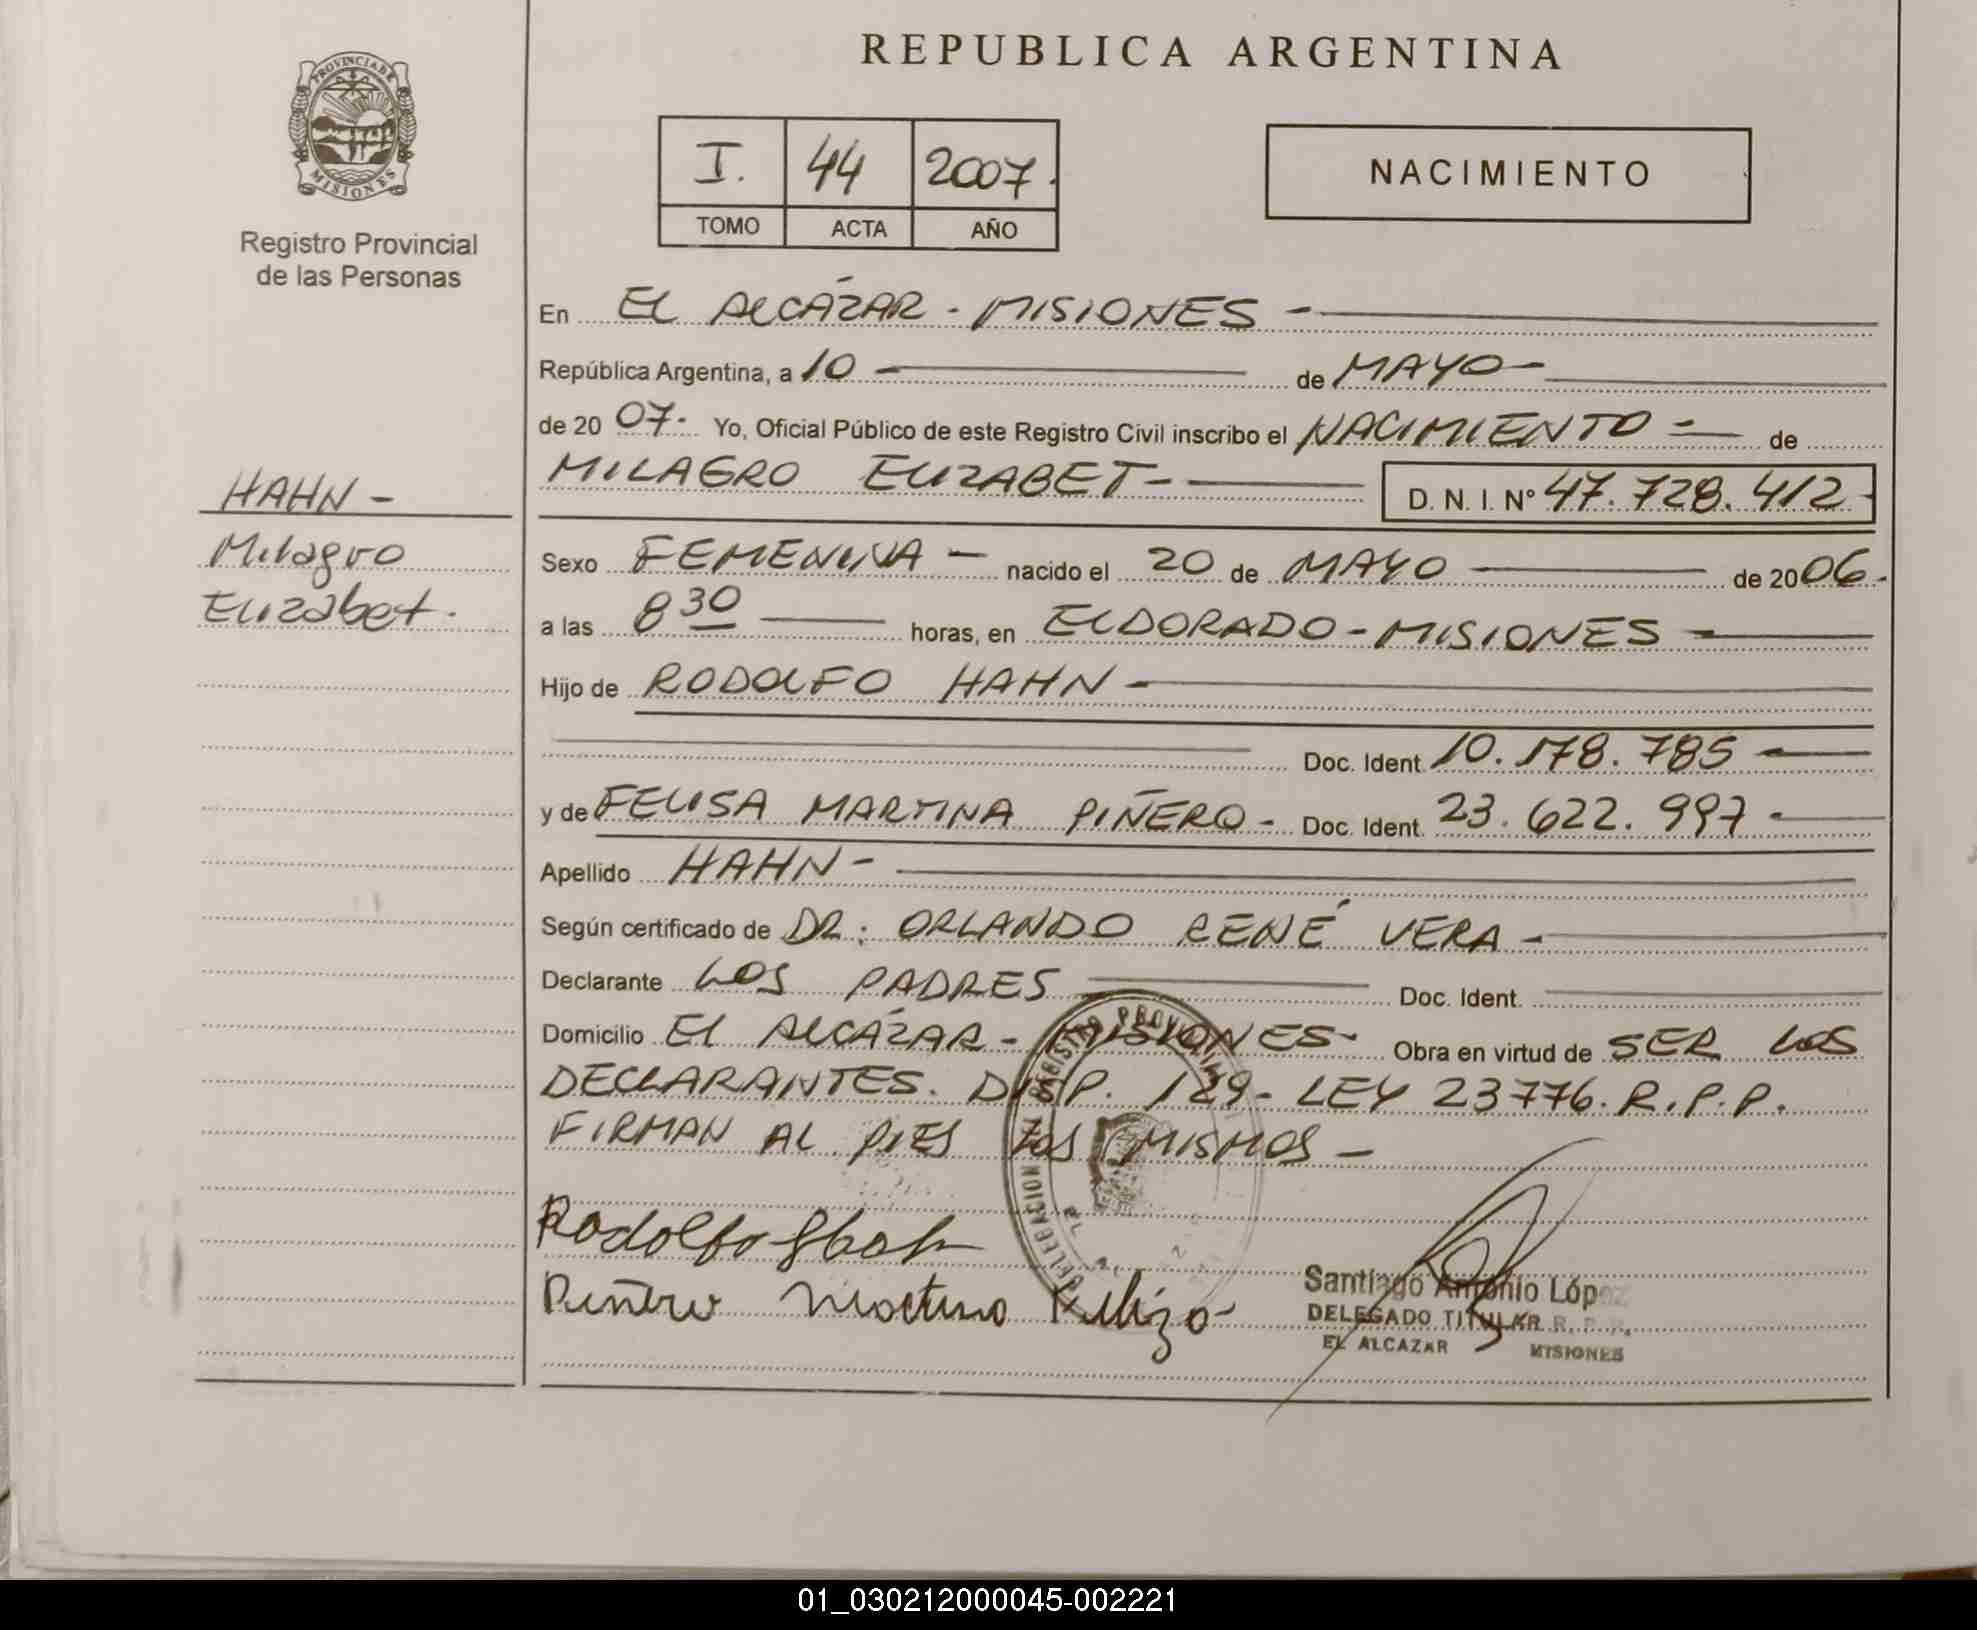 REPUBLICA ARGENTINA
PROVINCIA DE MISIONES
Registro Provincial
de las Personas
I. 44 2007.
TOMO ACTA AÑO
NACIMIENTO
HAHN -
Milagro
Elizabet.
En EL ALCÁZAR - MISIONES -
República Argentina, a 10 de MAYO -
de 2007. Yo, Oficial Público de este Registro Civil inscribo el NACIMIENTO - de
MILAGRO ELIZABET - D. N. I. Nº 47.728.412
Sexo FEMENINA - nacido el 20 de MAYO de 2006.
a las 8 30 horas, en ELDORADO - MISIONES -
Hijo de RODOLFO HAHN -
Doc. Ident. 10.178.785 -
y de FELISA MARTINA PIÑERO - Doc. Ident. 23.622.997 -
Apellido HAHN -
Según certificado de DR: ORLANDO RENÉ VERA -
Declarante LOS PADRES Doc. Ident.
Domicilio EL ALCÁZAR - MISIONES - Obra en virtud de SER LOS
DECLARANTES. DISP. 129 - LEY 23776. R.P.P.
FIRMAN AL PIES LOS MISMOS -
Rodolfo
Piñero Martina
Santiago Antonio López
DELEGADO TITULAR R. P. P.
EL ALCAZAR MISIONES
01_030212000045-002221